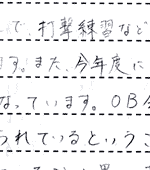 で、打撃練習など
ます。また、今年度に
なっています。OB
られているというこ